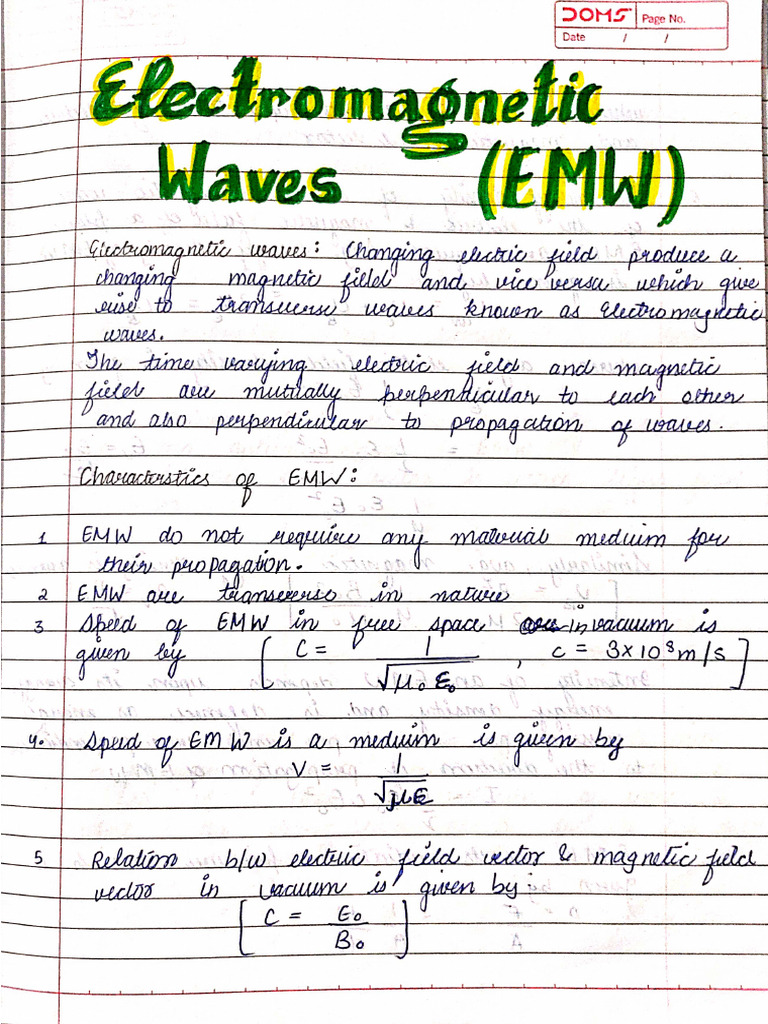 DOMS Page No.
Date / /
Electromagnetic
Waves (EMW)
Electromagnetic waves: Changing electric field produce a
changing magnetic field and vice versa which give
rise to transverse waves known as Electromagnetic
waves.
The time varying electric field and magnetic
field are mutually perpendicular to each other
and also perpendicular to propagation of waves.
Characterstics of EMW:
1 EMW do not require any material meduim for
their propagation.
2 EMW are transverse in nature
3 Speed of EMW in free space in vacuum is
given by [ C = 1/√μ₀ε₀ , c = 3×10⁸m/s ]
4. Speed of EMW is a meduim is given by
V = 1/√με
5 Relation b/w electric field vector & magnetic field
vector in vacuum is given by;
[ C = E₀/B₀ ]